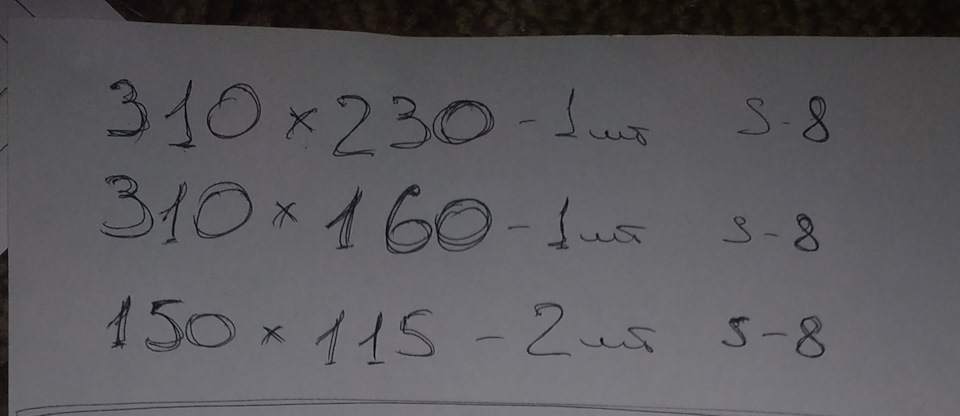 310 × 230 - 1 шт S-8
310 × 160 - 1 шт S-8
150 × 115 - 2 шт S-8